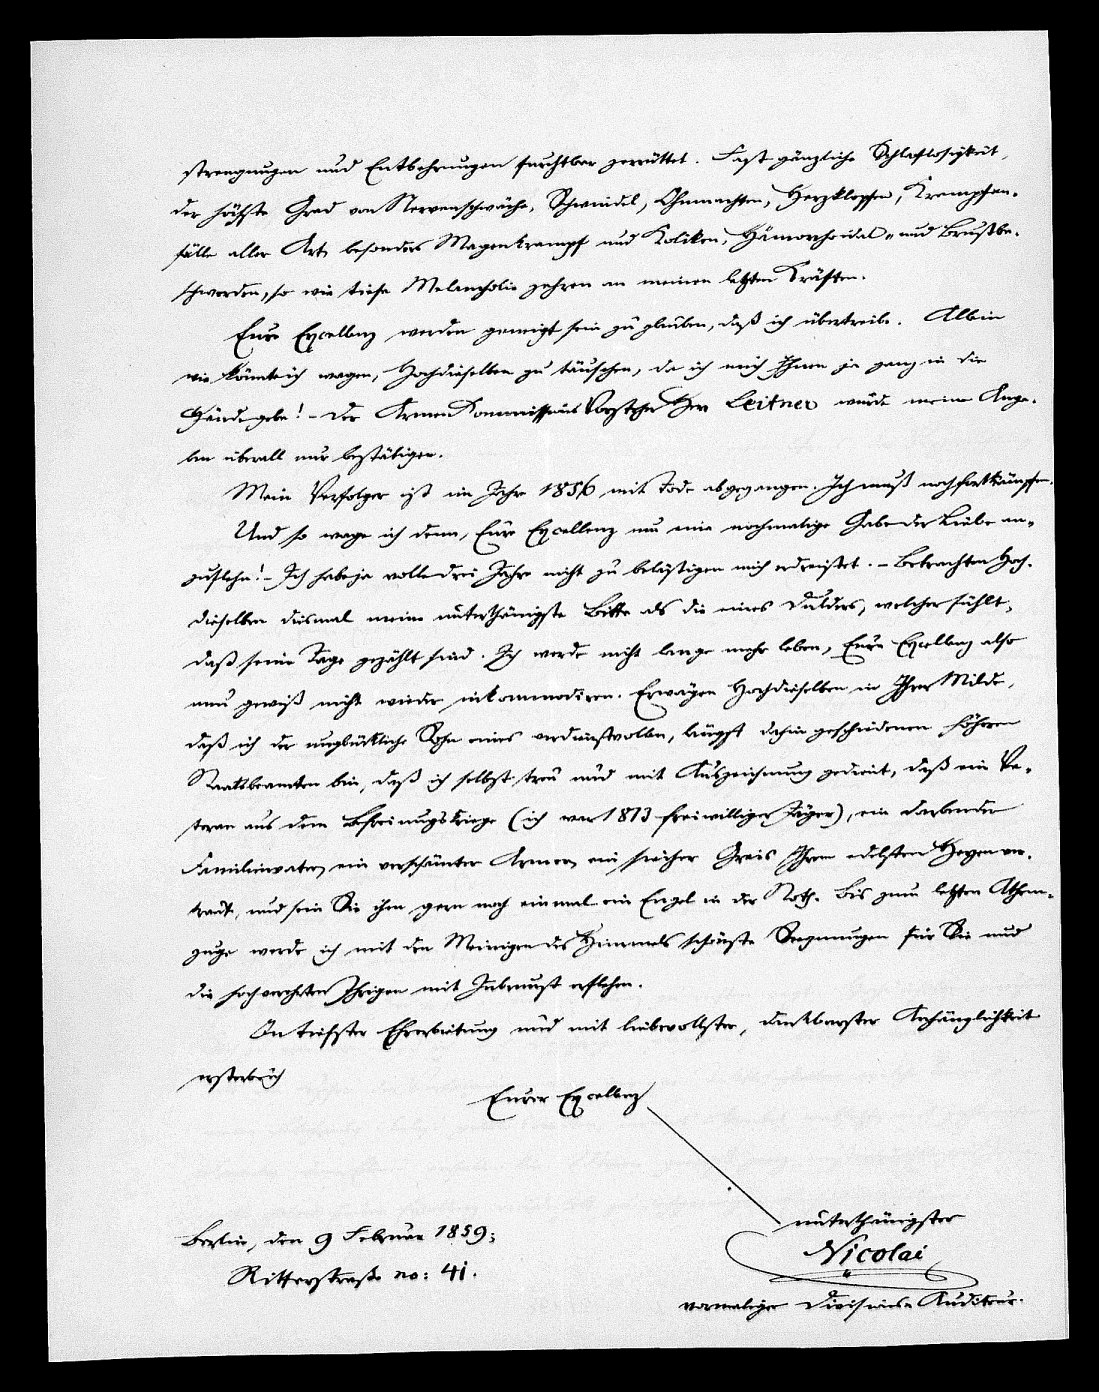 strengungen und Entbehrungen furchtbar zerrüttet. Fast gänzliche Schlaflosigkeit,
der höchste Grad von Nervenschwäche, Schwindel, Ohnmachten, Herzklopfen, Krampfan-
fälle aller Art, besonders Magenkrampf und Koliken, Hämorrhoidal- und Brustbe-
schwerden, so wie tiefe Melancholie zehren an meinen letzten Kräften.
Eure Excellenz werden geneigt sein zu glauben, daß ich übertreibe. Allein
wie könnte ich wagen, Hochdieselben zu täuschen, da ich mich Ihnen ja ganz in die
Hände gebe! - Der Armen Kommissions Vorsteher Herr Leitner würde meine Anga-
ben überall nur bestätigen.
Mein Verfolger ist im Jahr 1856 mit Tode abgegangen. Ich muß noch fortkämpfen.
Und so wage ich denn, Eure Excellenz um eine nochmalige Gabe der Liebe an-
zuflehn! - Ich habe ja volle drei Jahre nicht zu belästigen mich erdreistet. - Betrachten Hoch-
dieselben diesmal meine unterthänigste Bitte als die eines Dulders, welcher fühlt,
daß seine Tage gezählt sind. Ich werde nicht lange mehr leben, Eure Excellenz also
nun gewiß nicht wieder inkommodiren. Erwägen Hochdieselben in Ihrer Milde,
daß ich der unglückliche Sohn eines verdienstvollen, längst dahin geschiedenen höhern
Staatsbeamten bin, daß ich selbst treu und mit Auszeichnung gedient, daß ein Ve-
teran aus dem Befreiungskriege (ich war 1813 freiwilliger Jäger), ein darbender
Familienvater, ein verschämter Armer, ein siecher Greis Ihrem edelsten Herzen ver-
traut, und sein Sie ihm gern noch einmal ein Engel in der Noth. Bis zum letzten Athem-
zuge werde ich mit den Meinigen des Himmels schönste Segnungen für Sie und
die hochverehrten Ihrigen mit Inbrunst erflehen.
In tiefster Ehrerbietung und mit liebevollster, dankbarster Anhänglichkeit
ersterbe ich
Eurer Excellenz
unterthänigster
Berlin, den 9 Februar 1859;
Nicolai
Ritterstraße no: 41.
vormaliger Divisions-Auditeur.